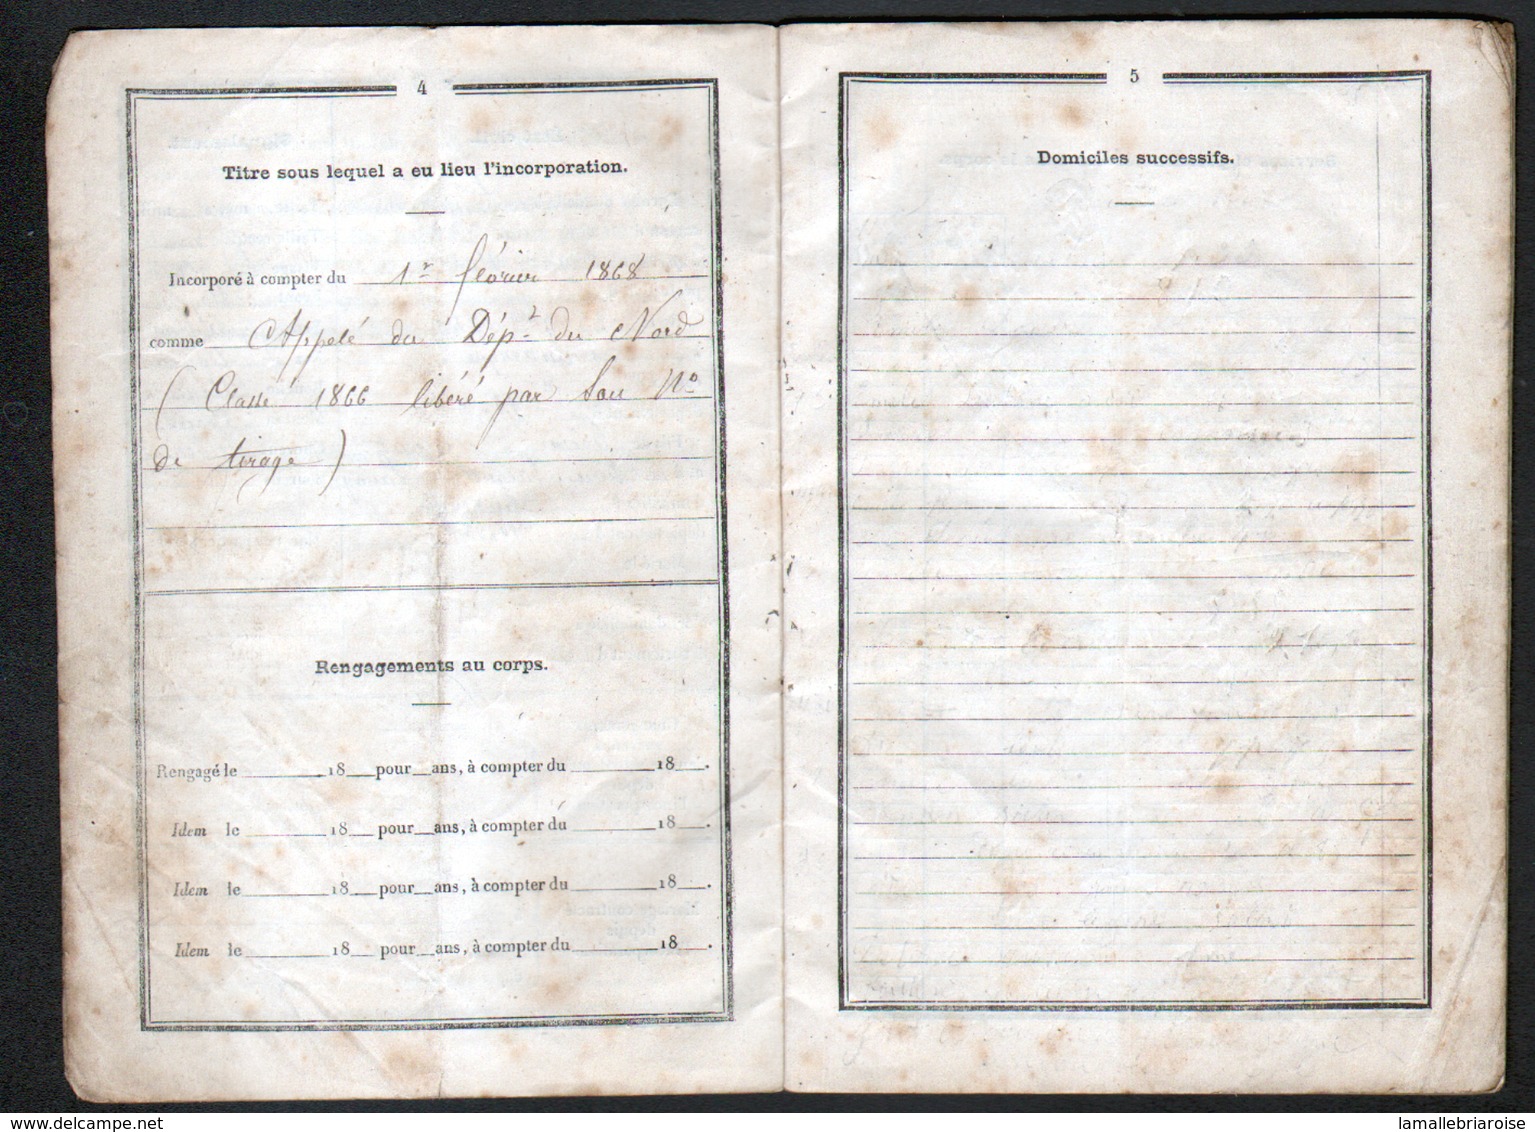 4
Titre sous lequel a eu lieu l'incorporation.
Incorporé à compter du 1er février 1868
comme Appelé du Dépt du Nord
(Classe 1866 libéré par son No
de tirage)
Rengagements au corps.
Rengagé le ________ 18__ pour __ ans, à compter du ________ 18__.
Idem le ________ 18__ pour __ ans, à compter du ________ 18__.
Idem le ________ 18__ pour __ ans, à compter du ________ 18__.
Idem le ________ 18__ pour __ ans, à compter du ________ 18__.
5
Domiciles successifs.
www.delcampe.net
lamallebriaroise